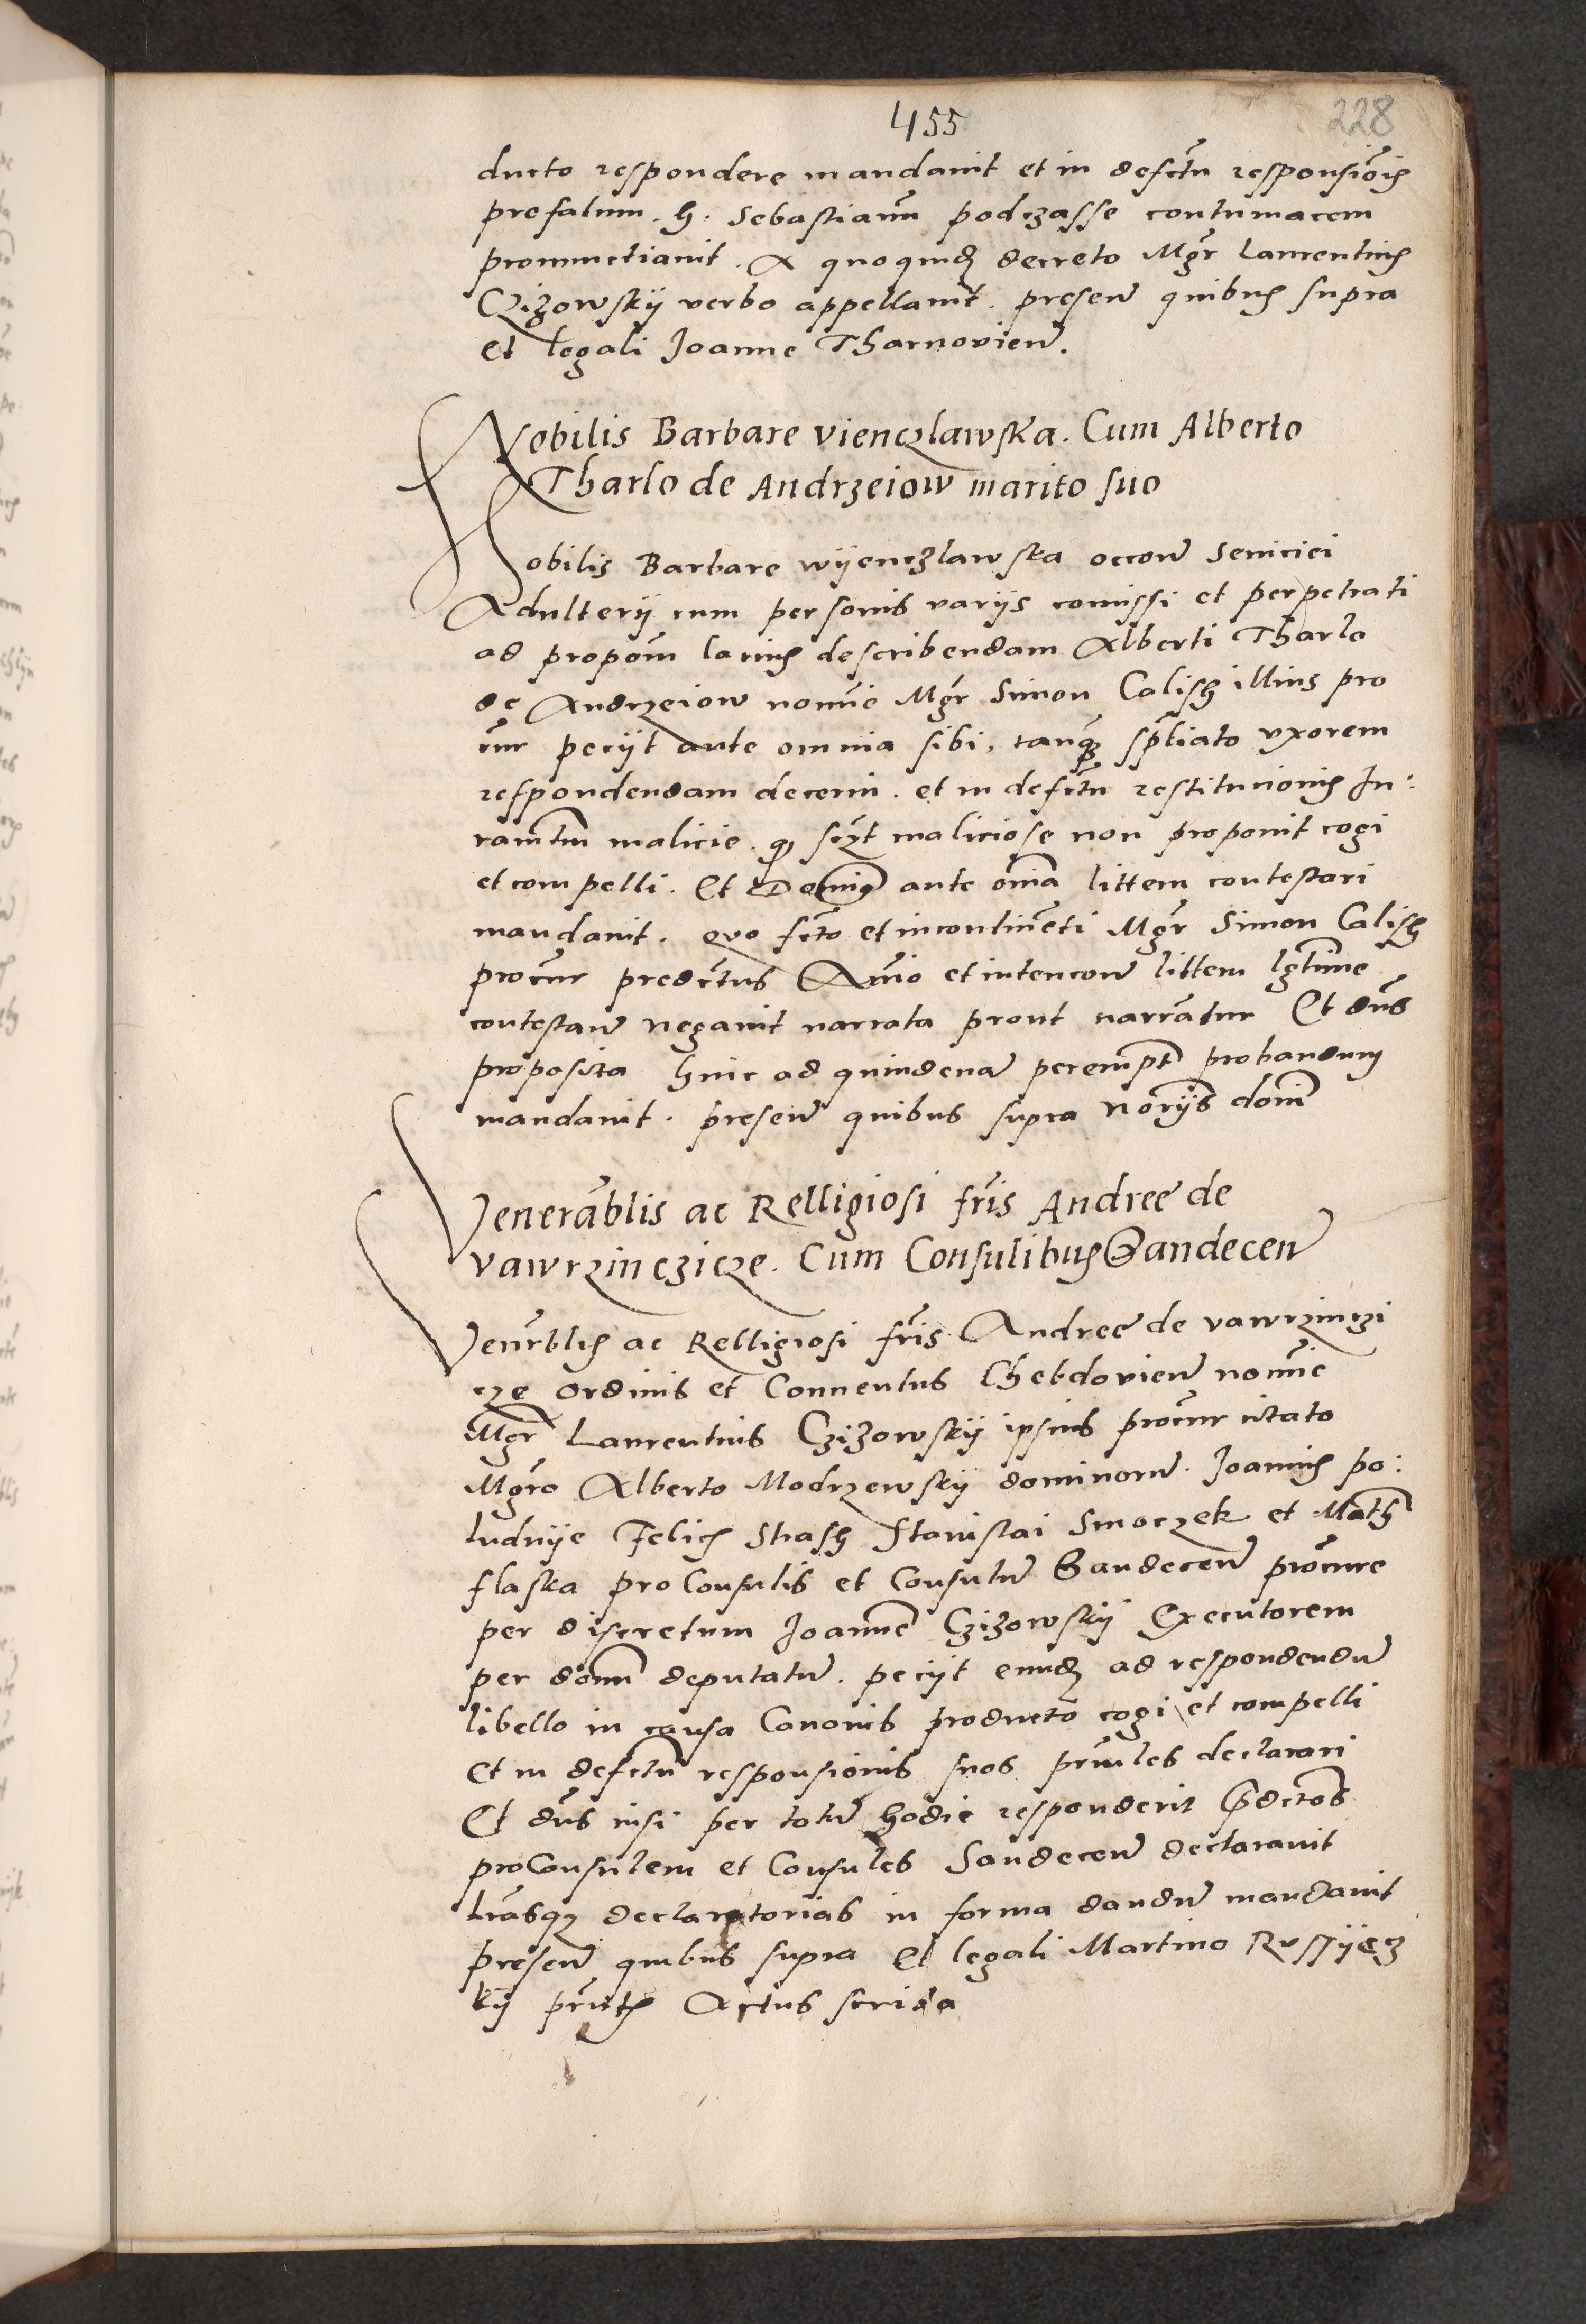 455
228
ducto respondere mandauit et in defctũ responsiõis
prefatum. h. Sebastianũ podczasse contumacem
pronunctiauit. A quoquidẽ decreto Mgr Laurentius
Czizowskÿ verbo appellauit. presen̄ quibus supra
et legali Joanne Tharnovien̄.
Nobilis Barbare vienczlawska. Cum Alberto
Tharlo de Andrzeiow marito suo
Nobilis Barbare wÿenczlawska occon̄ Seniciei
Adulterÿ cum personis varÿs comissi et perpetrati
ad propõm latius describendam Alberti Tharlo
de Andrzeiow nomĩe Mgr Simon Calisch illius pro
cur̃ petÿt ante omnia sibi, tanq̃ spliato vxorem
respondendam decerni. et in defctũ restitucionis Ju:
ramtũm malicie. q, sczt maliciose non proponit cogi
et compelli. Et Domĩg ante oñia littem contestari
mandauit. quo fcto et incontinẽti Mgr Simon Calisch
procur̃ predctus Aĩo et intencon̄ littem lgtime
contestan̄ negauit narrata prout narrãtur Et dñs
proposita huic ad quindenā perempt probandum
mandauit. presen̄ quibus supra norÿs domĩ
Venerãblis ac Relligiosi fris Andreę de
vawrzinczicze. Cum Consulibus Sandecen̄
Venrblis ac Relligiosi fris Andreę de vawrzinczi
cze ordinis et Conuentus Chebdovien̄ nomĩe
Mgr Laurentius Czizowskÿ ipsius procur̃ citato
Mgro Alberto Modrzewskÿ dominorū. Joannis po:
ludnÿe Felicis Strasch Stanislai Smoczek et Math
flaska proConsulis et Consulū Sandecen̄ procure
per discretum Joannē Czizowskÿ Executorem
per domñ deputatū. petÿt eundẽ ad respondendū
libello in causa Canonis producto cogi et compelli
Et in defctũ responsionis suos prinles declarari
Et dñs nisi per totū hodie responderit p̃dctos
proConsulem et Consules Sandecen̄ declarauit
Lr̃asqz declaratorias in forma dandū mandauit
presen̄ quibus supra Et legali Martino Russÿecz
kÿ prñtis Actus scriba